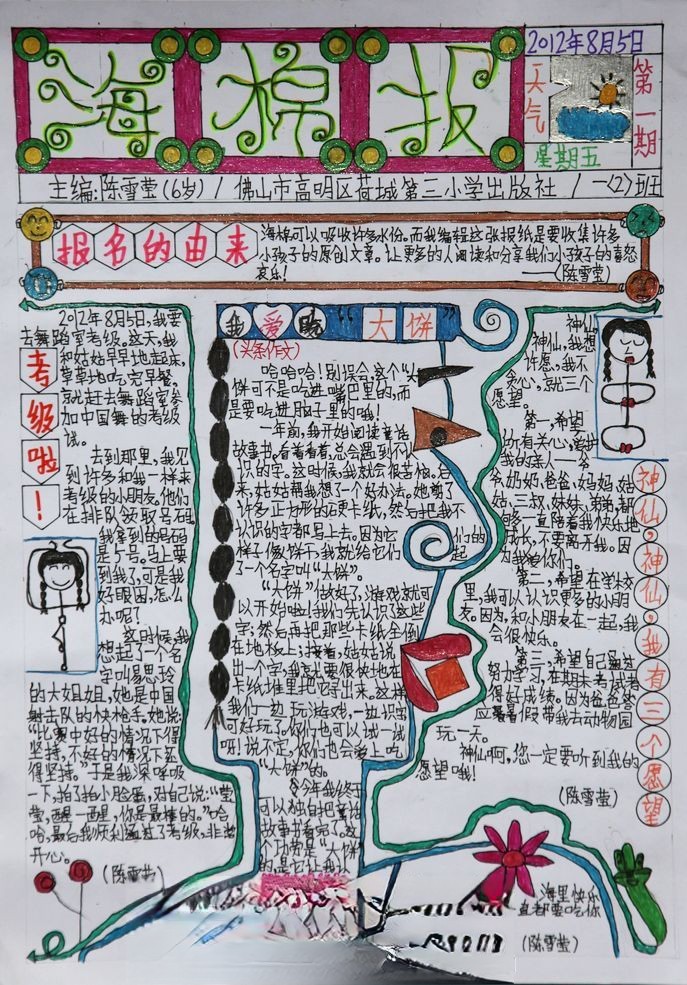 海棉报
2012年8月5日
天气
星期五
第一期
主编:陈雪莹(6岁)/佛山市高明区荷城第三小学出版社/一<2>班
报名的由来
海棉可以吸收许多水份。而我编辑这张报纸是要收集许多
小孩子的原创文章。让更多的人阅读和分享我们小孩子的喜怒
哀乐!
——(陈雪莹)
考级啦!
2012年8月5日,我要
去舞蹈室考级。这天,我
和姑姑早早地起来,
草草地吃完早餐,
就赶去舞蹈室参
加中国舞的考级
试。
去到那里,我见
到许多和我一样来
考级的小朋友。他们
在排队领取号码
我拿到的号码
是5号。马上要
到我了,可是我
好眼困,怎么
办呢?
这时候,我
想起了一个名
字叫易思玲
的大姐姐,她是中国
射击队的快枪手。她说:
“比赛中好的情况下得
坚持,不好的情况下还
得坚持。”于是我深呼吸
一下,拍了拍小脸蛋,对自己说:“莹
莹,醒一醒,你是最棒的。”哈
哈,最后我顺利通过了考级,非常
开心。
(陈雪莹)
我爱吃“大饼”
(头条作文)
哈哈哈!别误会这个“大
饼可不是吃进嘴巴里的,而
是要吃进脑子里的哦!
一年前,我开始阅读童话
故事书。看着看着,总会遇到不
识的字。这时候,我就会很苦恼。后
来,姑姑帮我想了一个好办法。她剪了
许多正方形的硬卡纸,然后把我不
认识的字都写上去。因为它们的
样子像饼干,我就给它们起
了一个名字叫“大饼”。
“大饼”做好了,游戏就可
以开始啦!我们先认识这些
字,然后再把那些卡纸全倒
在地板上;接着,姑姑说
出一个字,我就要很快地在
卡纸堆里把它寻出来。这样
我们一边玩游戏,一边识字
可好玩了。你们也可以试一试
呀!说不定,你们也会爱上吃
“大饼”的。
今年我终于
可以独自把童话
故事书看完了。这
个功劳是“大饼”
的是它让我认
神仙,神仙,我有三个愿望
神仙,
神仙,我想
许愿,我不
贪心,就三个
愿望。
第一,希望
所有关心,爱护
我的亲人——爷
爷,奶奶,爸爸,妈妈,姑
姑,三叔,妹妹,弟弟,都
能够一直陪着我快乐地
成长,不要离开我。因
为我爱你们。
第二,希望在学校
里,我可以认识更多的小朋
友。因为,和小朋友在一起,我
会很快乐。
第三,希望自己通过
努力学习,在期末考试考
得好成绩。因为爸爸答
应暑假带我去动物园
玩一天。
神仙啊,您一定要听到我的
愿望哦!
(陈雪莹)
海里快乐
且都要吃你
(陈雪莹)